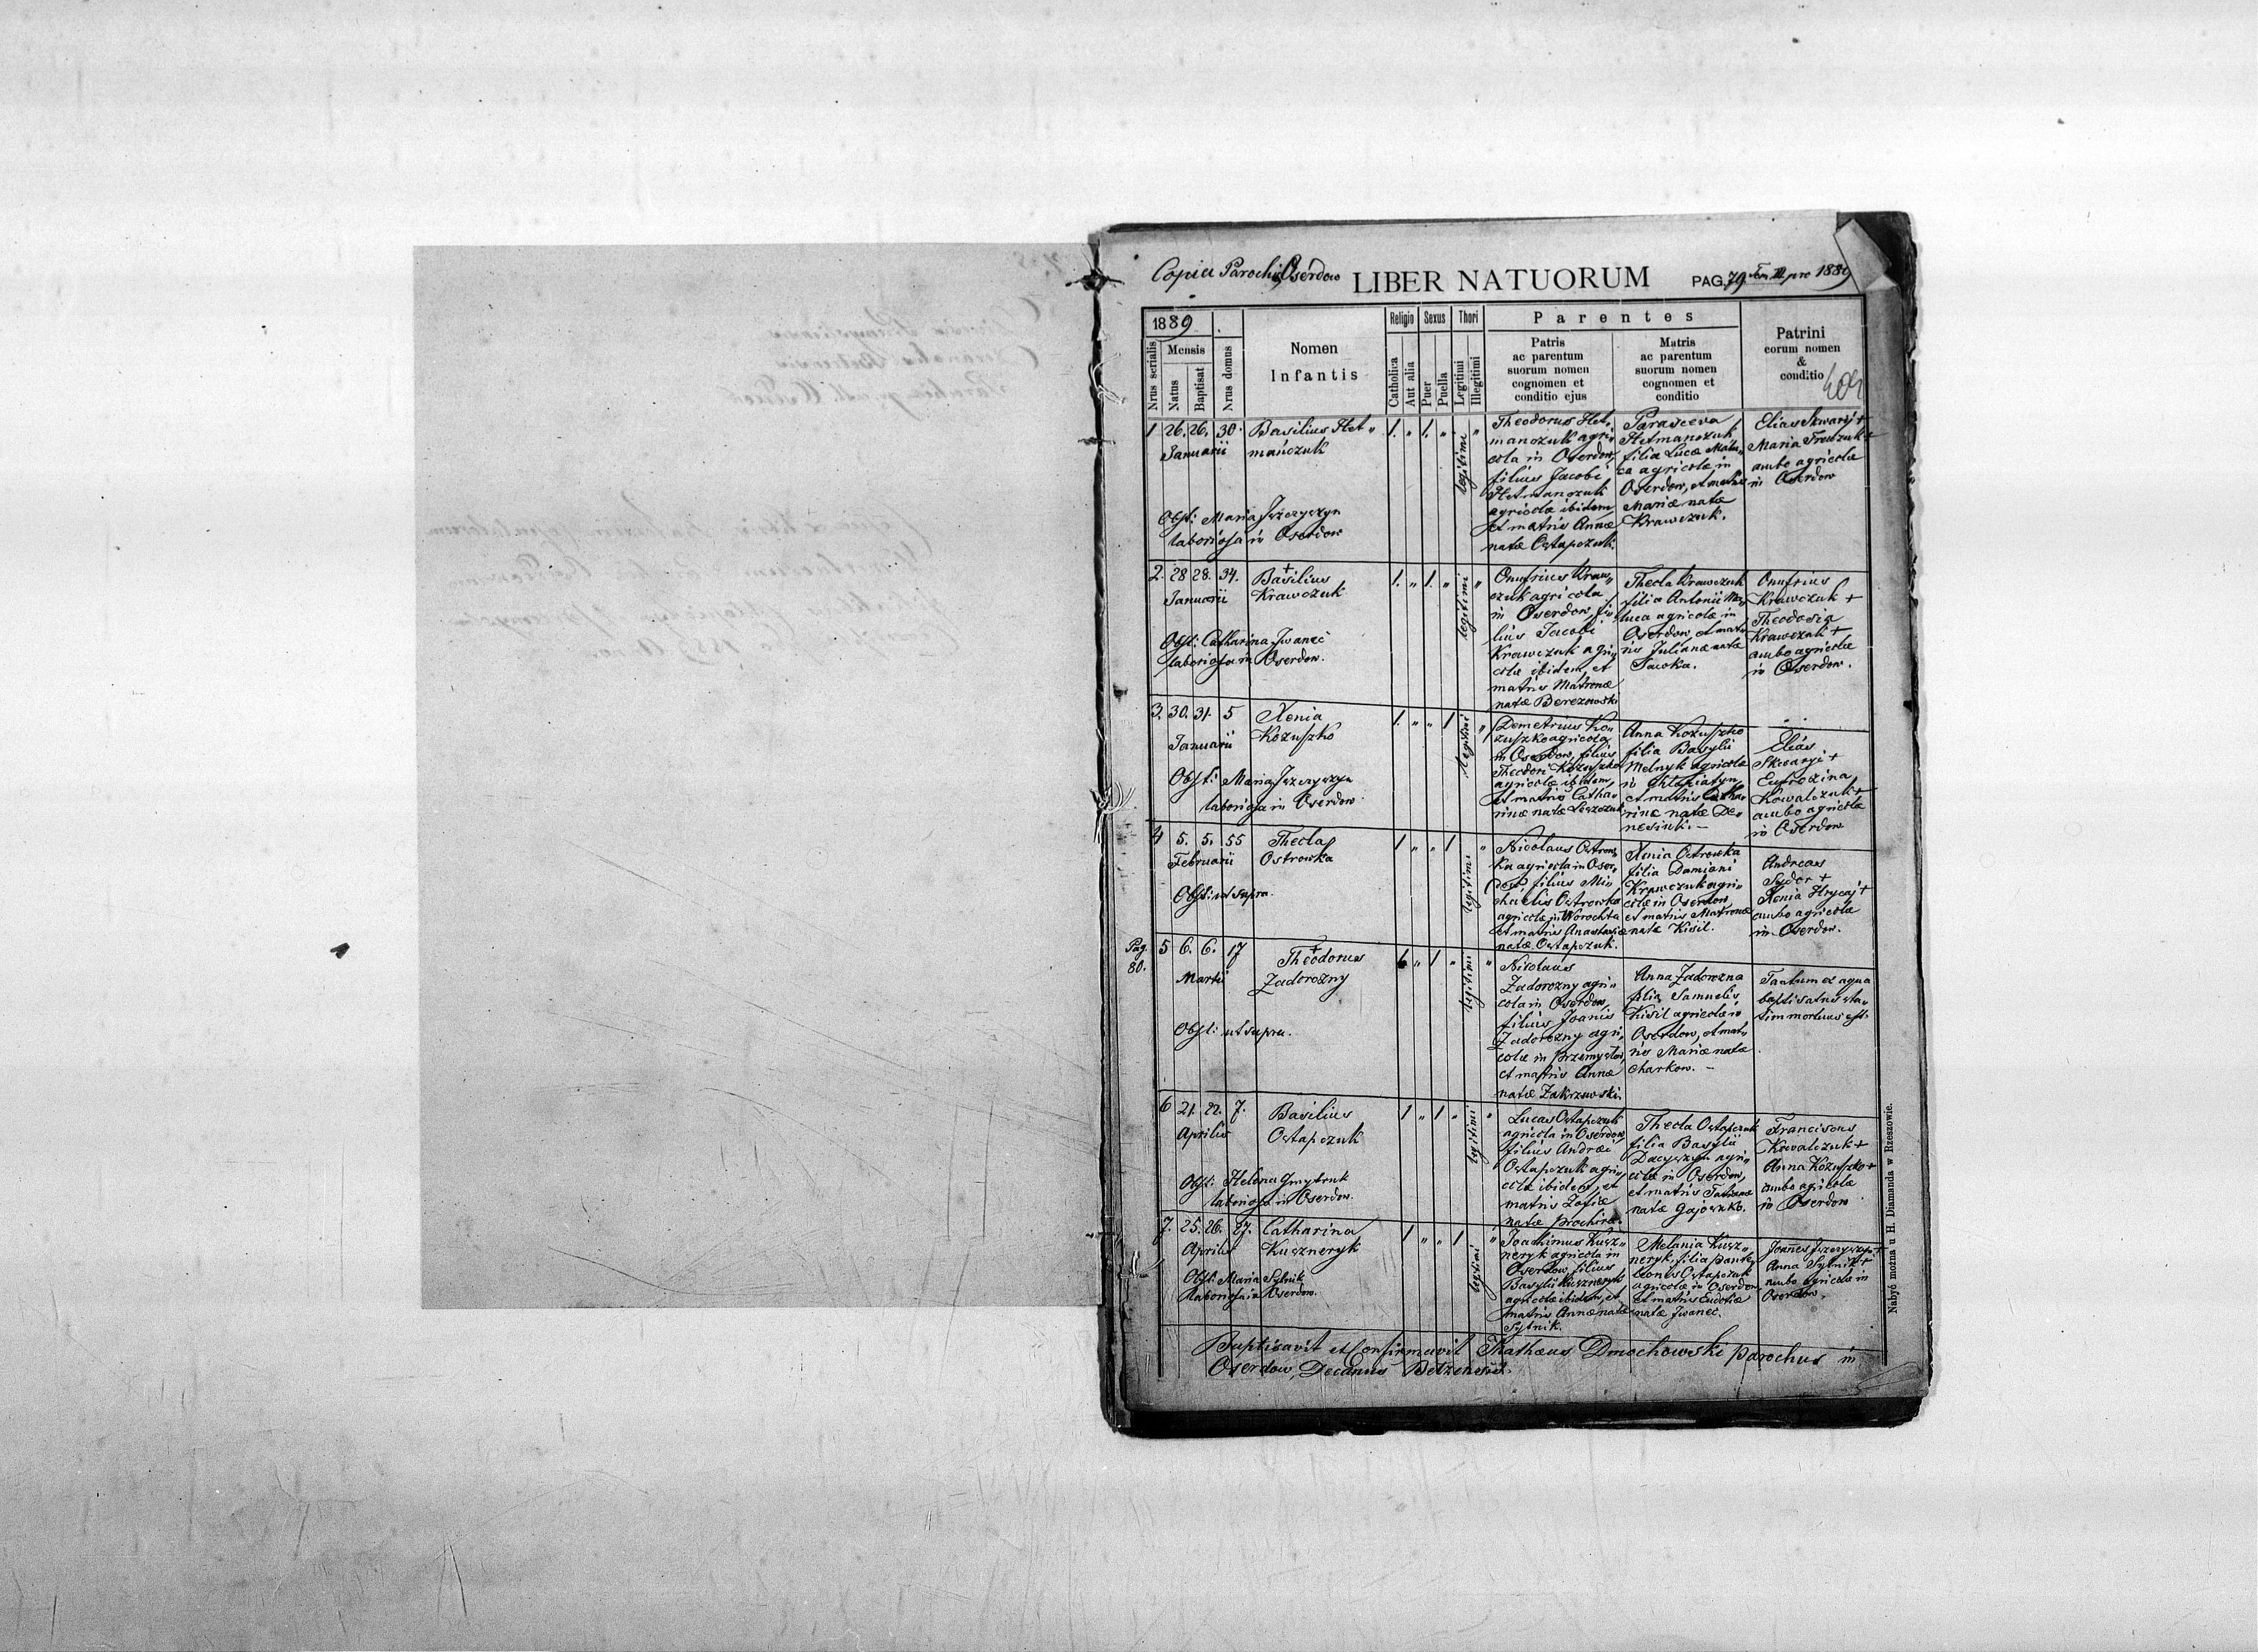 Copia Parochiæ Oserdow LIBER NATUORUM PAG. 79 Tom III pro 1889
1889
Nrus serialis
Mensis
Natus
Baptisat
Nrus domus
Nomen
Infantis
Religio
Catholica
Aut alia
Sexus
Puer
Puella
Thori
Legitimi
Illegitimi
Parentes
Patris
ac parentum
suorum nomen
cognomen et
conditio ejus
Matris
ac parentum
suorum nomen
cognomen et
conditio
Patrini
eorum nomen
&
conditio
1 26. 26. 30. Basilius Het„
Januarii mańczuk
Obst: Maria Jszczyszyn
laboriosa in Oserdow
1. „ 1. „ legitimi „
Theodorus Het„
manczuk agri„
cola in Oserdow,
filius Jacobi
Hetmanczuk
agricolæ ibidem
et matris Annæ
natæ Ostapczuk.
Parasceva
Hetmanczuk
filia Lucæ
ca agricolæ in
Oserdow, et matris
Mariæ natæ
Krawczuk.
Elias Skwaryj +
Maria +
ambo agricolæ
in Oserdow
2. 28 28. 34. Basilius
Januarii Krawczuk
Obst: Catharina Jwanec
laboriosa in Oserdow.
1. „ 1. „ legitimi „
Onufrius Kraw„
czuk agricola
in Oserdow, fi„
lius Jacobi
Krawczuk agri„
colæ ibidem, et
matris Matronæ
natæ Berezowski
Thecla Krawczuk
filia Antonii Ma„
luca agricolæ in
Oserdow, et mat„
ris Julianæ natæ
Sawka.
Onufrius
Krawczuk +
Theodosia
Krawczuk +
ambo agricolæ
in Oserdow.
3. 30. 31. 5 Xenia
Januarii Kozuszko
Obst: Maria Jszczyszyn
laboriosa in Oserdow.
1. „ „ 1 legitimi „
Demetrius Ko„
zuszko agricola
in Oserdow, filius
Theodori Kozuszko
agricolæ ibidem,
et matris Catha„
rinæ natæ Leszczuk
Anna Kozuszko
filia Basylii
Melnyk agricolæ
in Chłopiatyn
et matris Catha„
rinæ natæ De„
nesiuk. –
Elias
Skwaryj +
Eufrozina
Kowalczuk +
ambo agricolæ
in Oserdow
4 5. 5. 55 Thecla
Februarii Ostrowka
Obst: ut supra.
1 „ „ 1 legitimi „
Nicolaus Ostrow„
ka agricola in Oser„
dow, filius Mi„
chaelis Ostrowka
agricolæ in Worochta
et matris Anastasiæ
natæ Ostapczuk.
Xenia Ostrowka
filia Damiani
Krawczuk agri„
colæ in Oserdow,
et matris Matronæ
natæ Kisil.
Andreas
Sydor +
Xenia Hrycaj +
ambo agricolæ
in Oserdow.
Pag.
80.
5 6. 6. 17 Theodorus
Martii Zadorozny
Obst: ut supra.
1 „ 1 „ legitimi „
Nicolaus
Zadorozny agri„
cola in Oserdow,
filius Joanis
Zadorozny agri„
colæ in
et matris Annæ
natæ Zakrzewski.
Anna Zadorozna
filia Samuelis
Kisil agricolæ in
Oserdow, et mat„
ris Mariæ natæ
Charkow. –
Tantum ex aqua
baptisatus sta„
tim mortuus est.
6 21. 22. 7. Basilius
Aprilis Ostapczuk
Obst: Helena Gmytruk
laboriosa in Oserdow.
1 „ 1 „ legitimi „
Lucas Ostapczuk
agricola in Oserdow,
filius Andreæ
Ostapczuk agri„
colæ ibidem, et
matris Zofiæ
natæ
Thecla Ostapczuk
filia Basylii
Dacyszyn agri„
colæ in Oserdow,
et matris Tatianæ
natæ
Franciscus
Kowalczuk +
Anna Kozuszko +
ambo agricolæ
in Oserdow
7. 25. 26. 27. Catharina
Aprilis Kuszneryk
Obst: Maria Sytnik
laboriosa in Oserdow.
1 „ „ 1 legitimi „
Joachimus Kusz„
neryk agricola in
Oserdow, filius
Basylii Kuszneryk
agricolæ ibidem, et
matris Annæ natæ
Sytnik.
Melania Kusz„
neryk, filia Pante„
leonis Ostapczuk
agricolæ in Oserdow,
et matris Eudociæ
natæ Jwanec.
Joannes Jszczyszyn +
Anna Sytnik +
ambo agricolæ in
Oserdow.
Baptisavit et Confirmavit Mathæus Dmochowski parochus in
Oserdow, Decanus
Nabyć można u H. Diamanda w Rzeszowie.